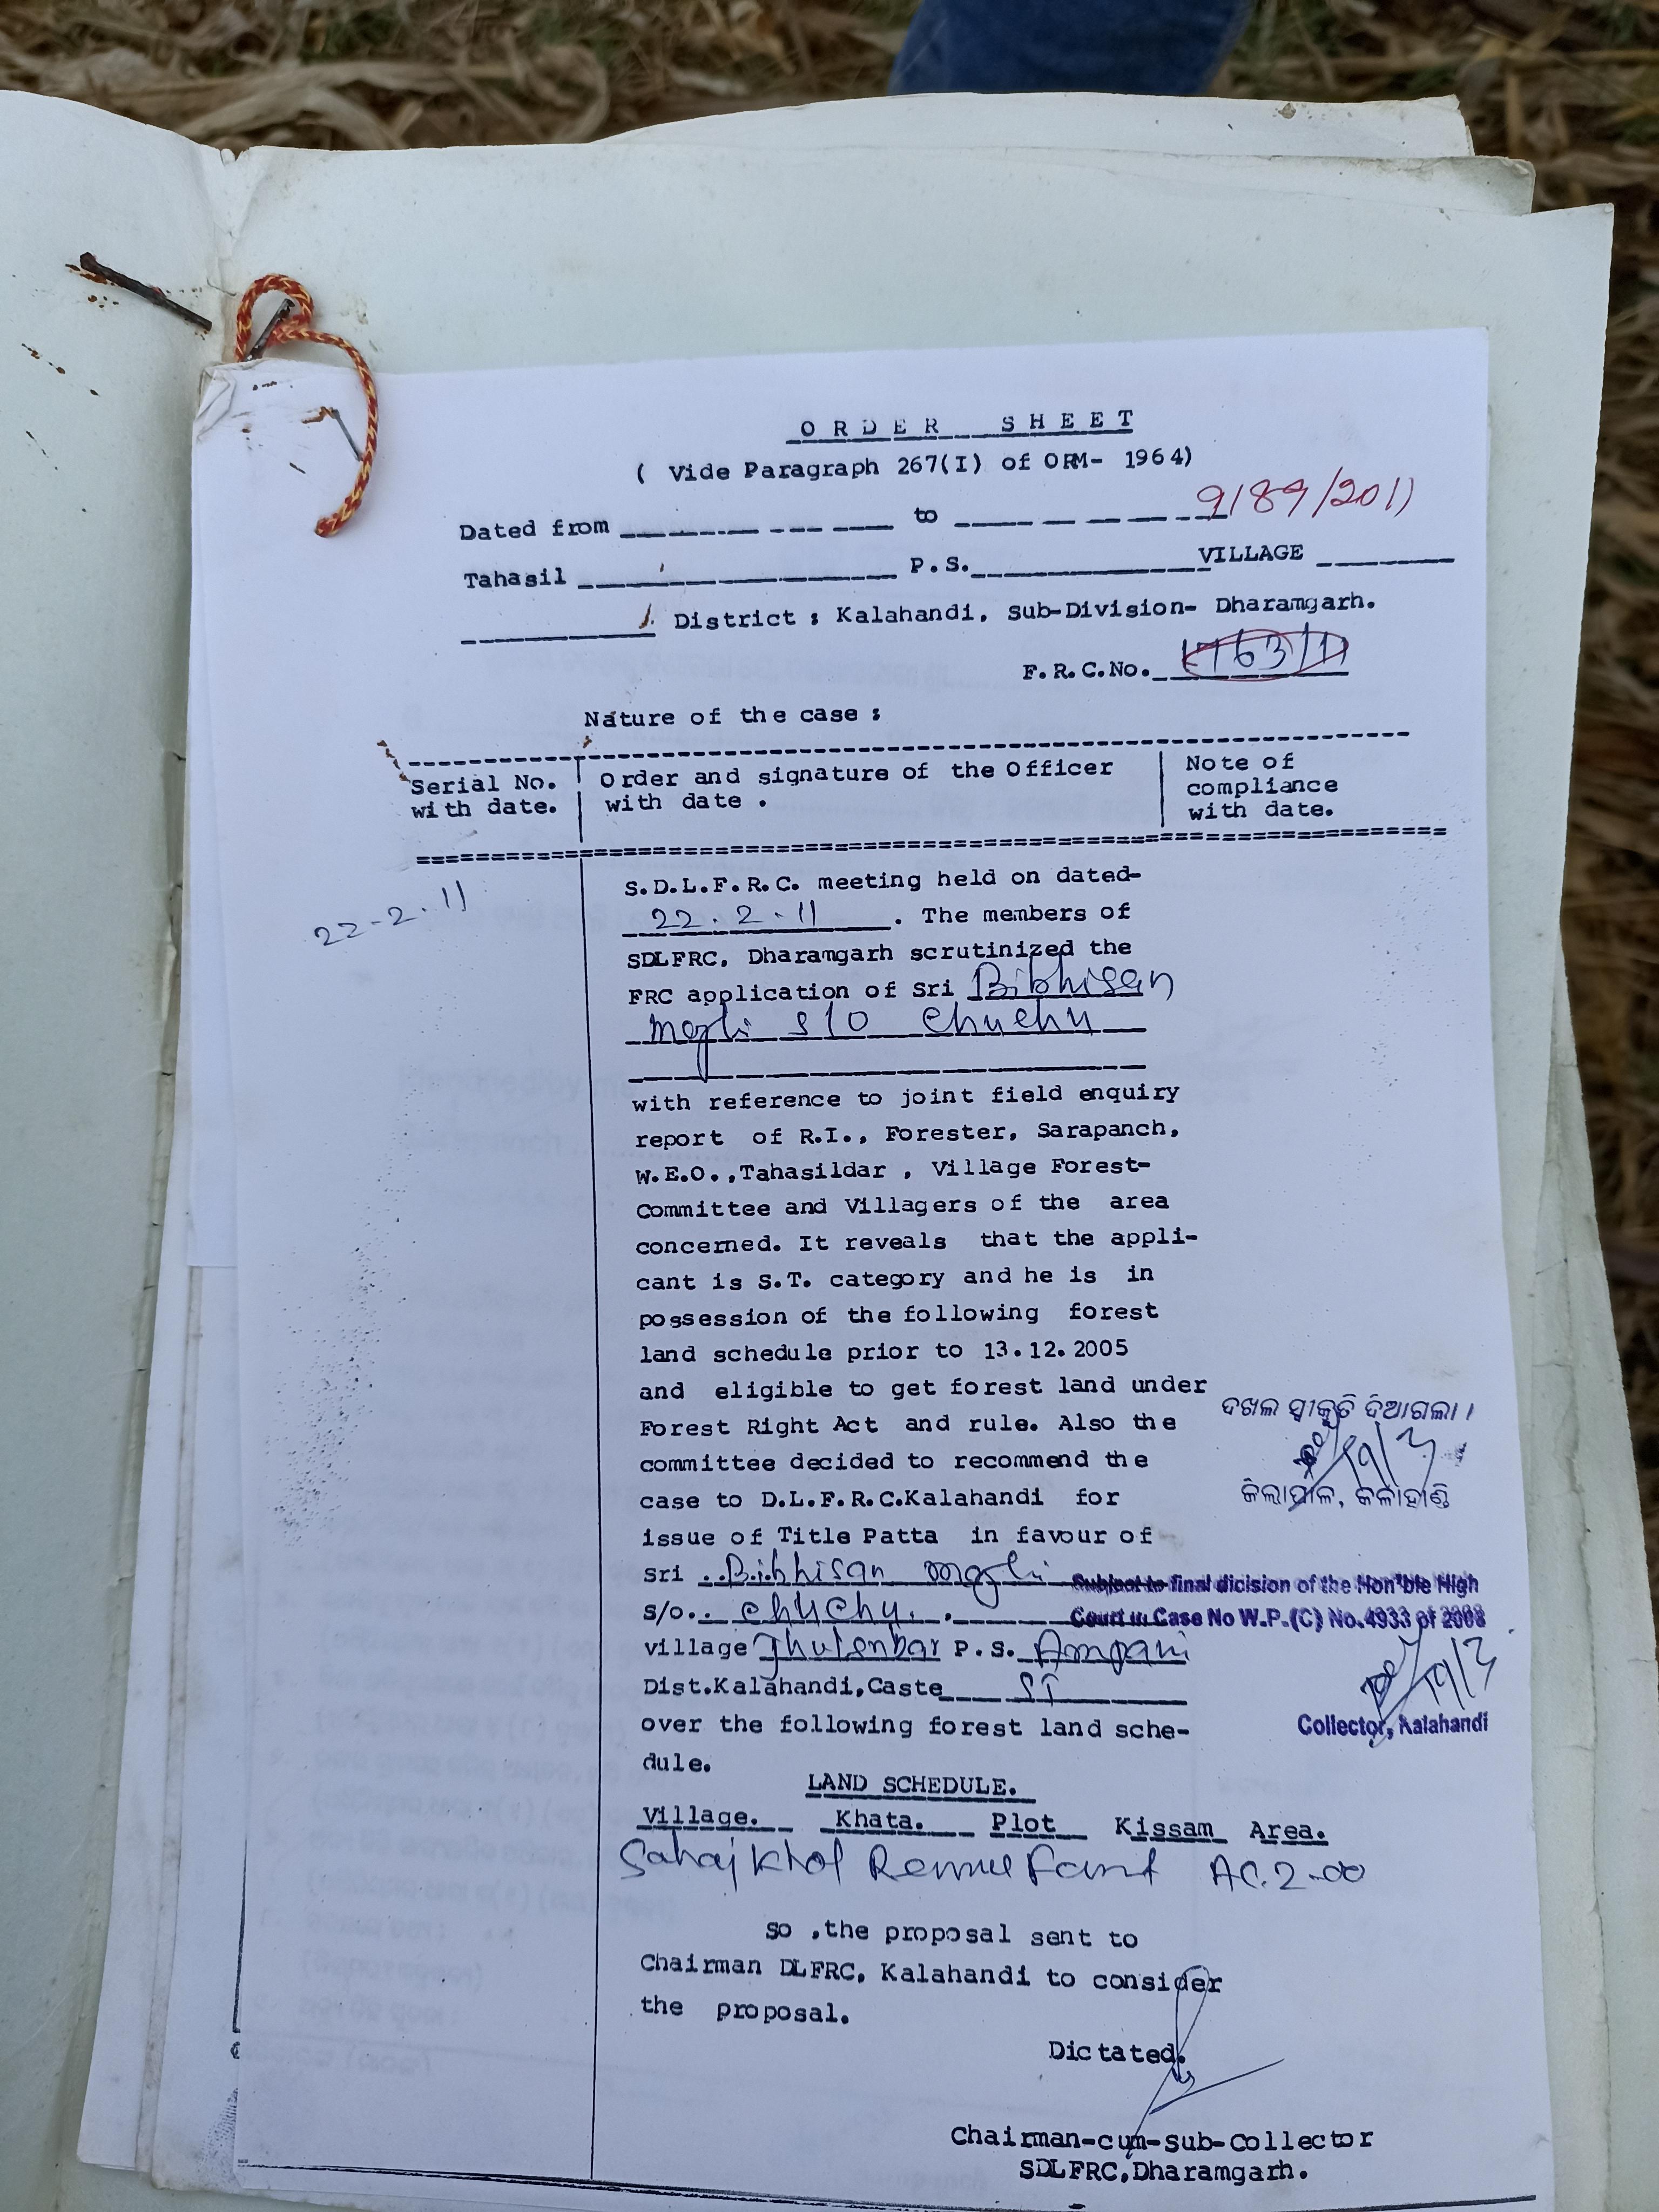 ORDER SHEET
( Vide Paragraph 267(I) of ORM- 1964)
9189/2011
Dated from ________ to ________
Tahasil ________ P.S.________ VILLAGE ________
________ District : Kalahandi, Sub-Division- Dharamgarh.
F.R.C.No. 1763/11
Nature of the case :
Serial No. with date.
Order and signature of the Officer with date .
Note of compliance with date.
22-2.11
S.D.L.F.R.C. meeting held on dated-
22.2.11 . The members of
SDLFRC, Dharamgarh scrutinized the
FRC application of Sri Bibhisan
majhi S/O Chuchu
with reference to joint field enquiry
report of R.I., Forester, Sarapanch,
W.E.O.,Tahasildar , Village Forest-
Committee and Villagers of the area
concerned. It reveals that the appli-
cant is S.T. category and he is in
possession of the following forest
land schedule prior to 13.12.2005
and eligible to get forest land under
Forest Right Act and rule. Also the
committee decided to recommend the
case to D.L.F.R.C.Kalahandi for
issue of Title Patta in favour of
Sri ..Bibhisan majhi
S/o.. Chuchu..
village Jhulenbar P.S. Ampani
Dist.Kalahandi,Caste ST
over the following forest land sche-
dule.
ଦଖଲ ସ୍ୱୀକୃତି ଦିଆଗଲା ।
ଜିଲାପାଳ, କଳାହାଣ୍ଡି
Subject to final dicision of the Hon'ble High
Court in Case No W.P.(C) No.4933 of 2008
Collector, Kalahandi
LAND SCHEDULE.
Village. Khata. Plot Kissam Area.
Sahajkhol Revenue Forest AC.2-00
So ,the proposal sent to
Chairman DLFRC, Kalahandi to consider
the proposal.
Dictated.
Chairman-cum-Sub-Collector
SDLFRC,Dharamgarh.